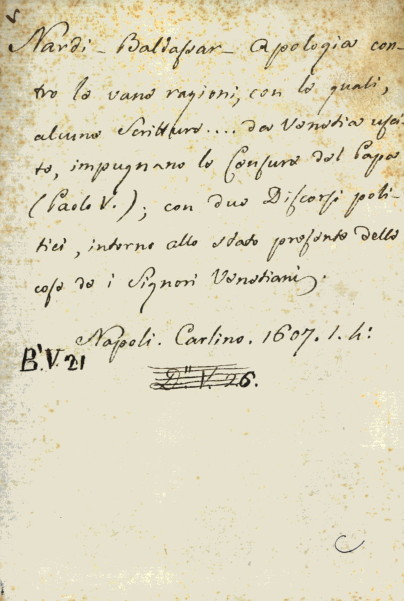 Nardi - Baldaſsar - Apologia con-
tro le vane ragioni, con le quali,
alcune Scritture.... da Venetia uſci-
te, impugnano le Cenſure del Papa
(Paolo V.); con due Diſcorſi poli-
tici, intorno allo stato preſente delle
coſe de i Signori Venetiani.
Napoli. Carlino. 1607. 1. 4:
B' V. 21
D" V. 26.